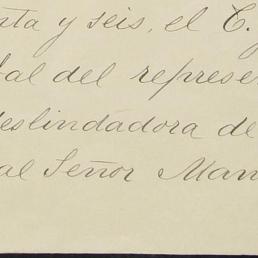 nta y seis, el C.
tal del represe
deslindadora de
al Señor Man